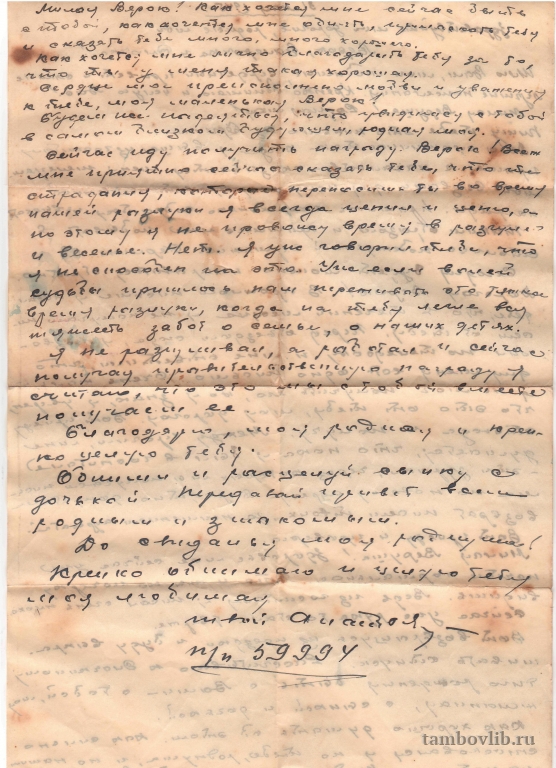 Милая Верок! Как хочется мне сейчас быть
с тобой, как хочется мне обнять, целовать тебя
и сказать тебе много, много хорошего.
Как хочется мне лично благодарить тебя за то,
что ты у меня такая хорошая.
Сердце моё преисполнено любви и уважения
к тебе, моя маленькая Верок!
Будем же надеяться, что увидимся с тобой
в самом близком будущем, родная моя.
Сейчас иду получить награду. Верок!
мне приятно сейчас сказать тебе, что те
страдания, которые переносишь ты во время
нашей разлуки я всегда ценил и ценю, а
поэтому я не провожу время в разгуле
и веселье. Нет. Я уже говорил тебе, что
я не способен на это. Уж если волей
судьбы пришлось нам переживать это тяжкое
время разлуки, когда на тебя легла вся
тяжесть забот о семье, о наших детях.
Я не разгуливал, а работал и сейчас
получаю правительственную награду. Я
считаю, что это мы с тобой вместе
получаем ее.
Благодарю, моя родная и креп-
ко целую тебя.
Обними и расцелуй сынку с
дочькой. Передавай привет всем
родным и знакомым.
До свиданья моя родная!
Крепко обнимаю и целую тебя
моя любимая
твой Анатолий
п/п 59994
tambovlib.ru